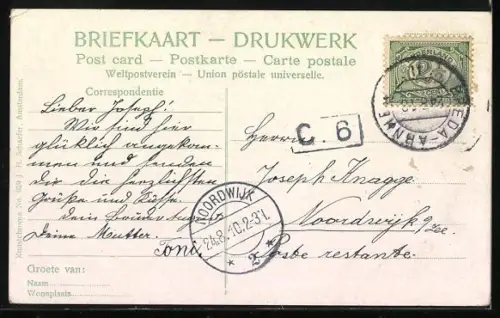 BRIEFKAART — DRUKWERK
Post card — Postkarte — Carte postale
Weltpostverein — Union postale universelle.
Correspondentie
Lieber Joseph!
Wir sind hier
glücklich angekom-
men und senden
dir die herzlichsten
Grüße und Küsse.
Dein Bruder
Deine Mutter.
Toni.
Groete van:
Naam
Woonplaats
C. 6
Herrn
Joseph Knagge
Noordwijk a/zee.
Poste restante.
NOORDWIJK
24.8.10.2-3N.
* 2 *
BREDA-ARNHE
NEDERLAND
2½
J. H. Schaefer, Amsterdam.